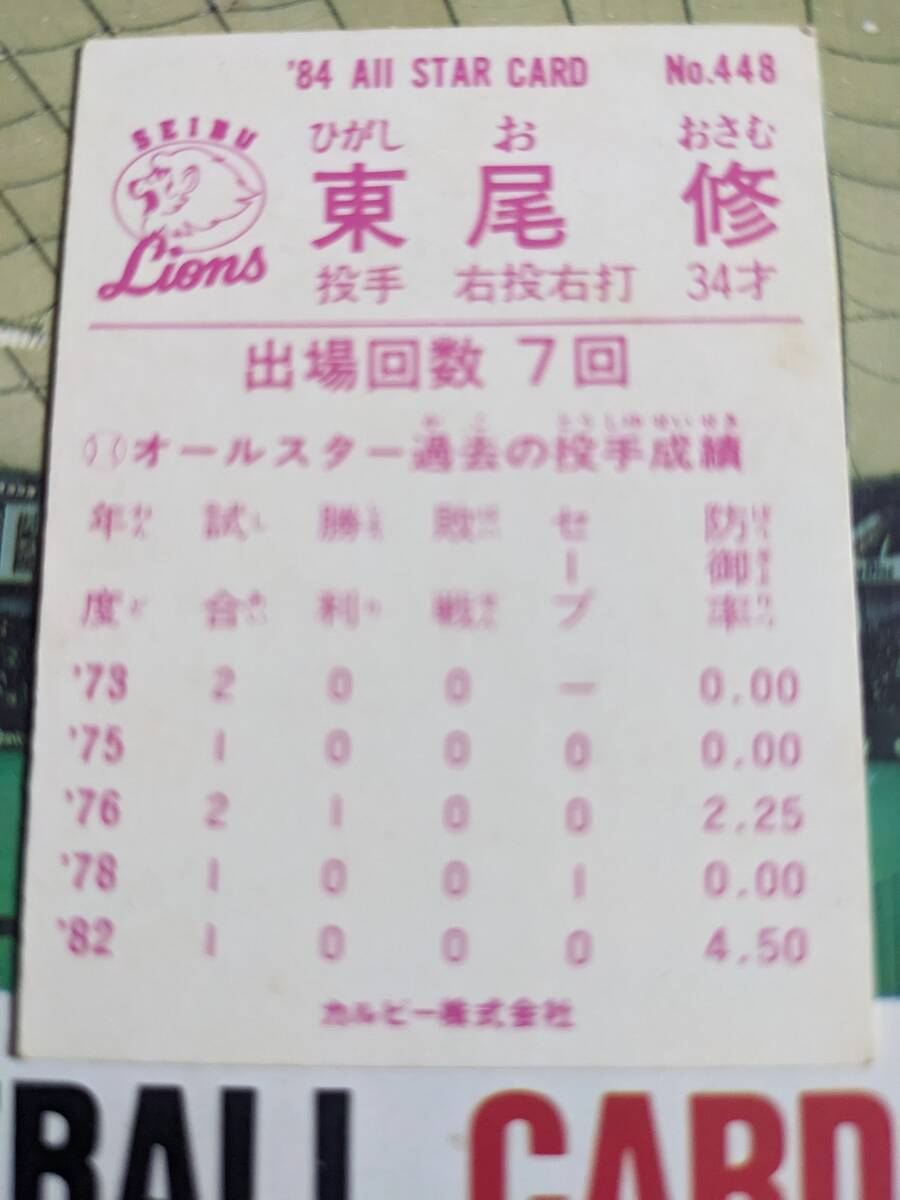 '84 All STAR CARD No.448
SEIBU
Lions
ひがし お おさむ
東尾 修
投手 右投右打 34才
出場回数 7回
かこ とうしゅせいせき
オールスター過去の投手成績
年度 試合 勝利 敗戦 セーブ 防御率
'73 2 0 0 ー 0.00
'75 1 0 0 0 0.00
'76 2 1 0 0 2.25
'78 1 0 0 1 0.00
'82 1 0 0 0 4.50
カルビー株式会社
BALL CARD